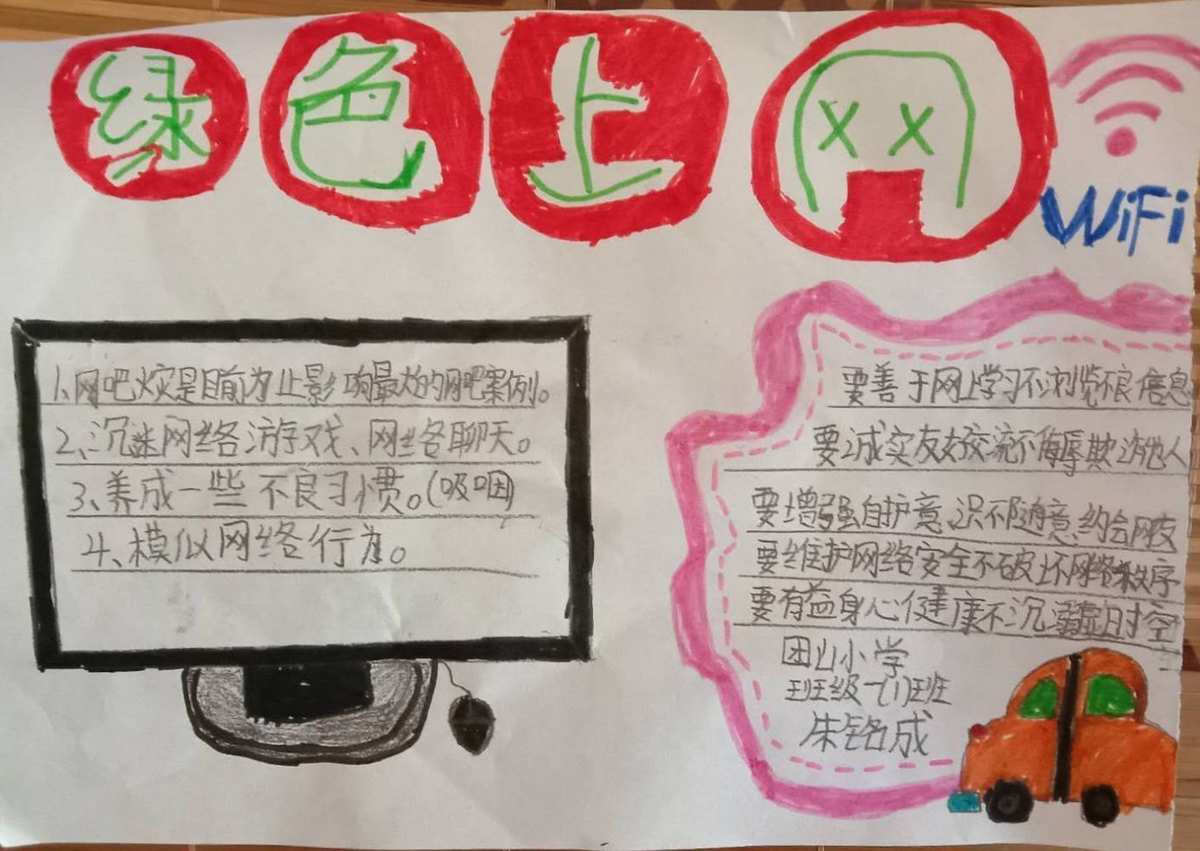 绿色上网
WiFi
1、网吧火灾是目前为止影响最大的网吧案例。
2、沉迷网络游戏、网络聊天。
3、养成一些不良习惯。(吸咽)
4、模似网络行为。
要善于网上学习不浏览不良信息
要诚实友好交流不侮辱欺诈他人
要增强自护意识不随意约会网友
要维护网络安全不破坏网络秩序
要有益身心健康不沉溺虚拟时空
团山小学
班级一(1)班
朱铭成